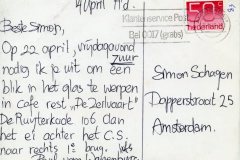 4 April
Beste Simon,
Op 22 april, vrijdagavond
nodig ik je uit om een
zuur
blik in het glas te werpen
in Cafe rest "De Zeilvaart"
De Ruyterkade 106 dan
het ei achter het C.S.
naar rechts 1e brug.
Klantenservice Post
Bel 0017 (gratis)
50c
nederland
Simon Schagen
Dapperstraat 25
Amsterdam.